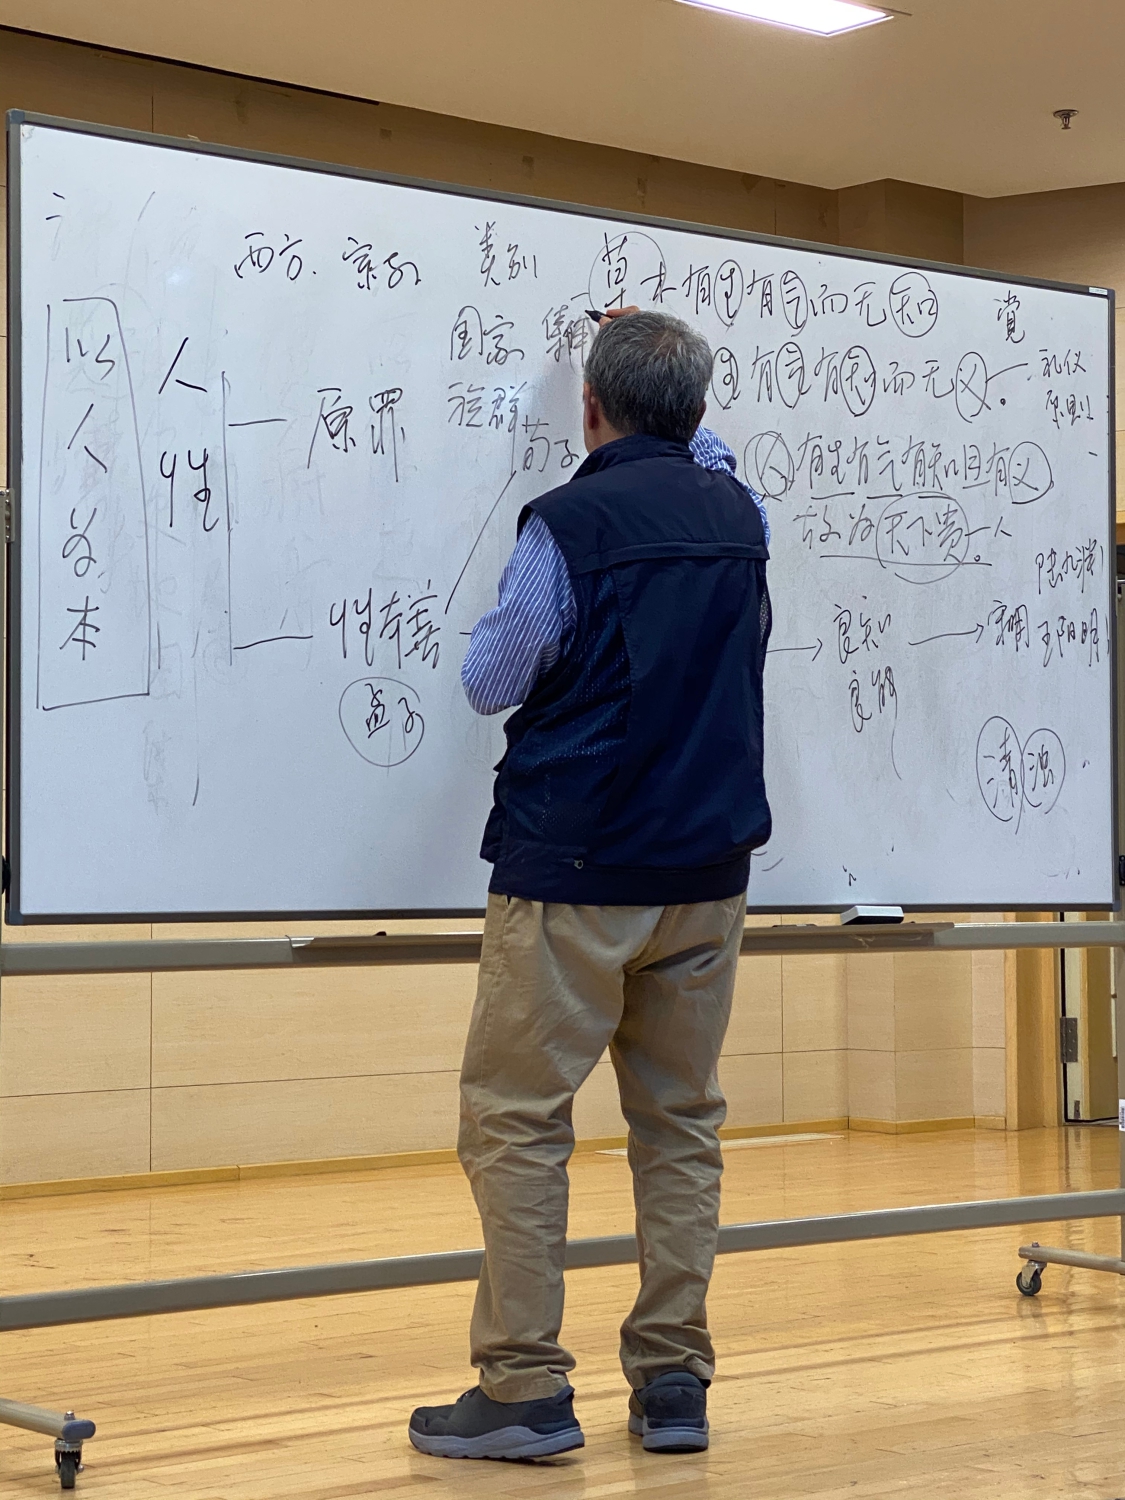 以人为本
人性
西方. 宗教
类别
国家 集体
族群
荀子
原罪
性本善
孟子
草木有生有气而无知
生有气有知而无义。
人有生有气有知且有义
故为天下贵。
觉
礼仪
良知
良能
王阳明
清浊